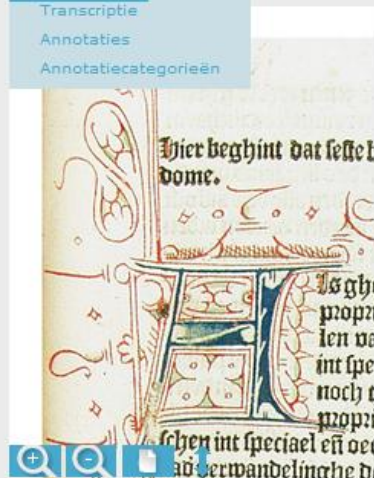 Transcriptie
Annotaties
Annotatiecategorieën
Hier beghint dat seste b
dome.
A
ls ghe
propri
len va
int spe
noch t
propri
schen int speciael eñ oec
verwandelinghe d